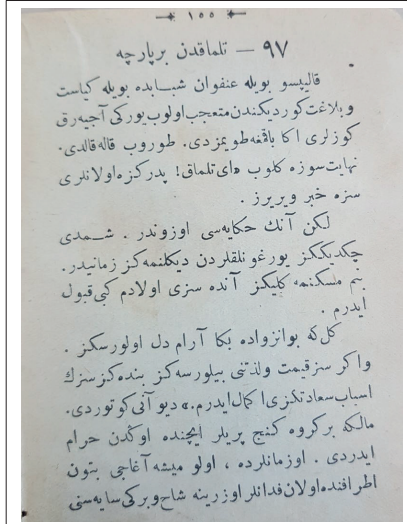 ١٥٥
٩٧ — تلماقدن برپارچه
قاليپسو بويله عنفوان شبابده بويله كياست
و بلاغت كورديكندن متعجب اولوب يوركى آجيه رق
كوزلرى اكا باقمغه طويمزدى. طوروب قاله قالدى.
نهايت سوزه كلوب «اى تلماق! پدركزه اولانلرى
سزه خبر ويريرز .
لكن آنك حكايه سى اوزوندر . شمدى
چكديككز يورغونلقلردن ديكلنمه كز زمانيدر.
بنم مسكنمه كليكز آنده سزى اولادم كبى قبول
ايدرم .
كل كه بوانزواده بكا آرام دل اولورسكز .
واكر سزقيمت ولذتنى بيلورسه كز بنده كز سزك
اسباب سعادتكزى اكمال ايدرم.» ديو آنى كوتوردى.
مالكه بركروه كنج پريلر ايچنده اوكدن خرام
ايدردى . اوزمانلرده ، اولو ميشه آغاجى بتون
اطرافنده اولان فدانلر اوزرينه شاخ وبركى سايه سنى